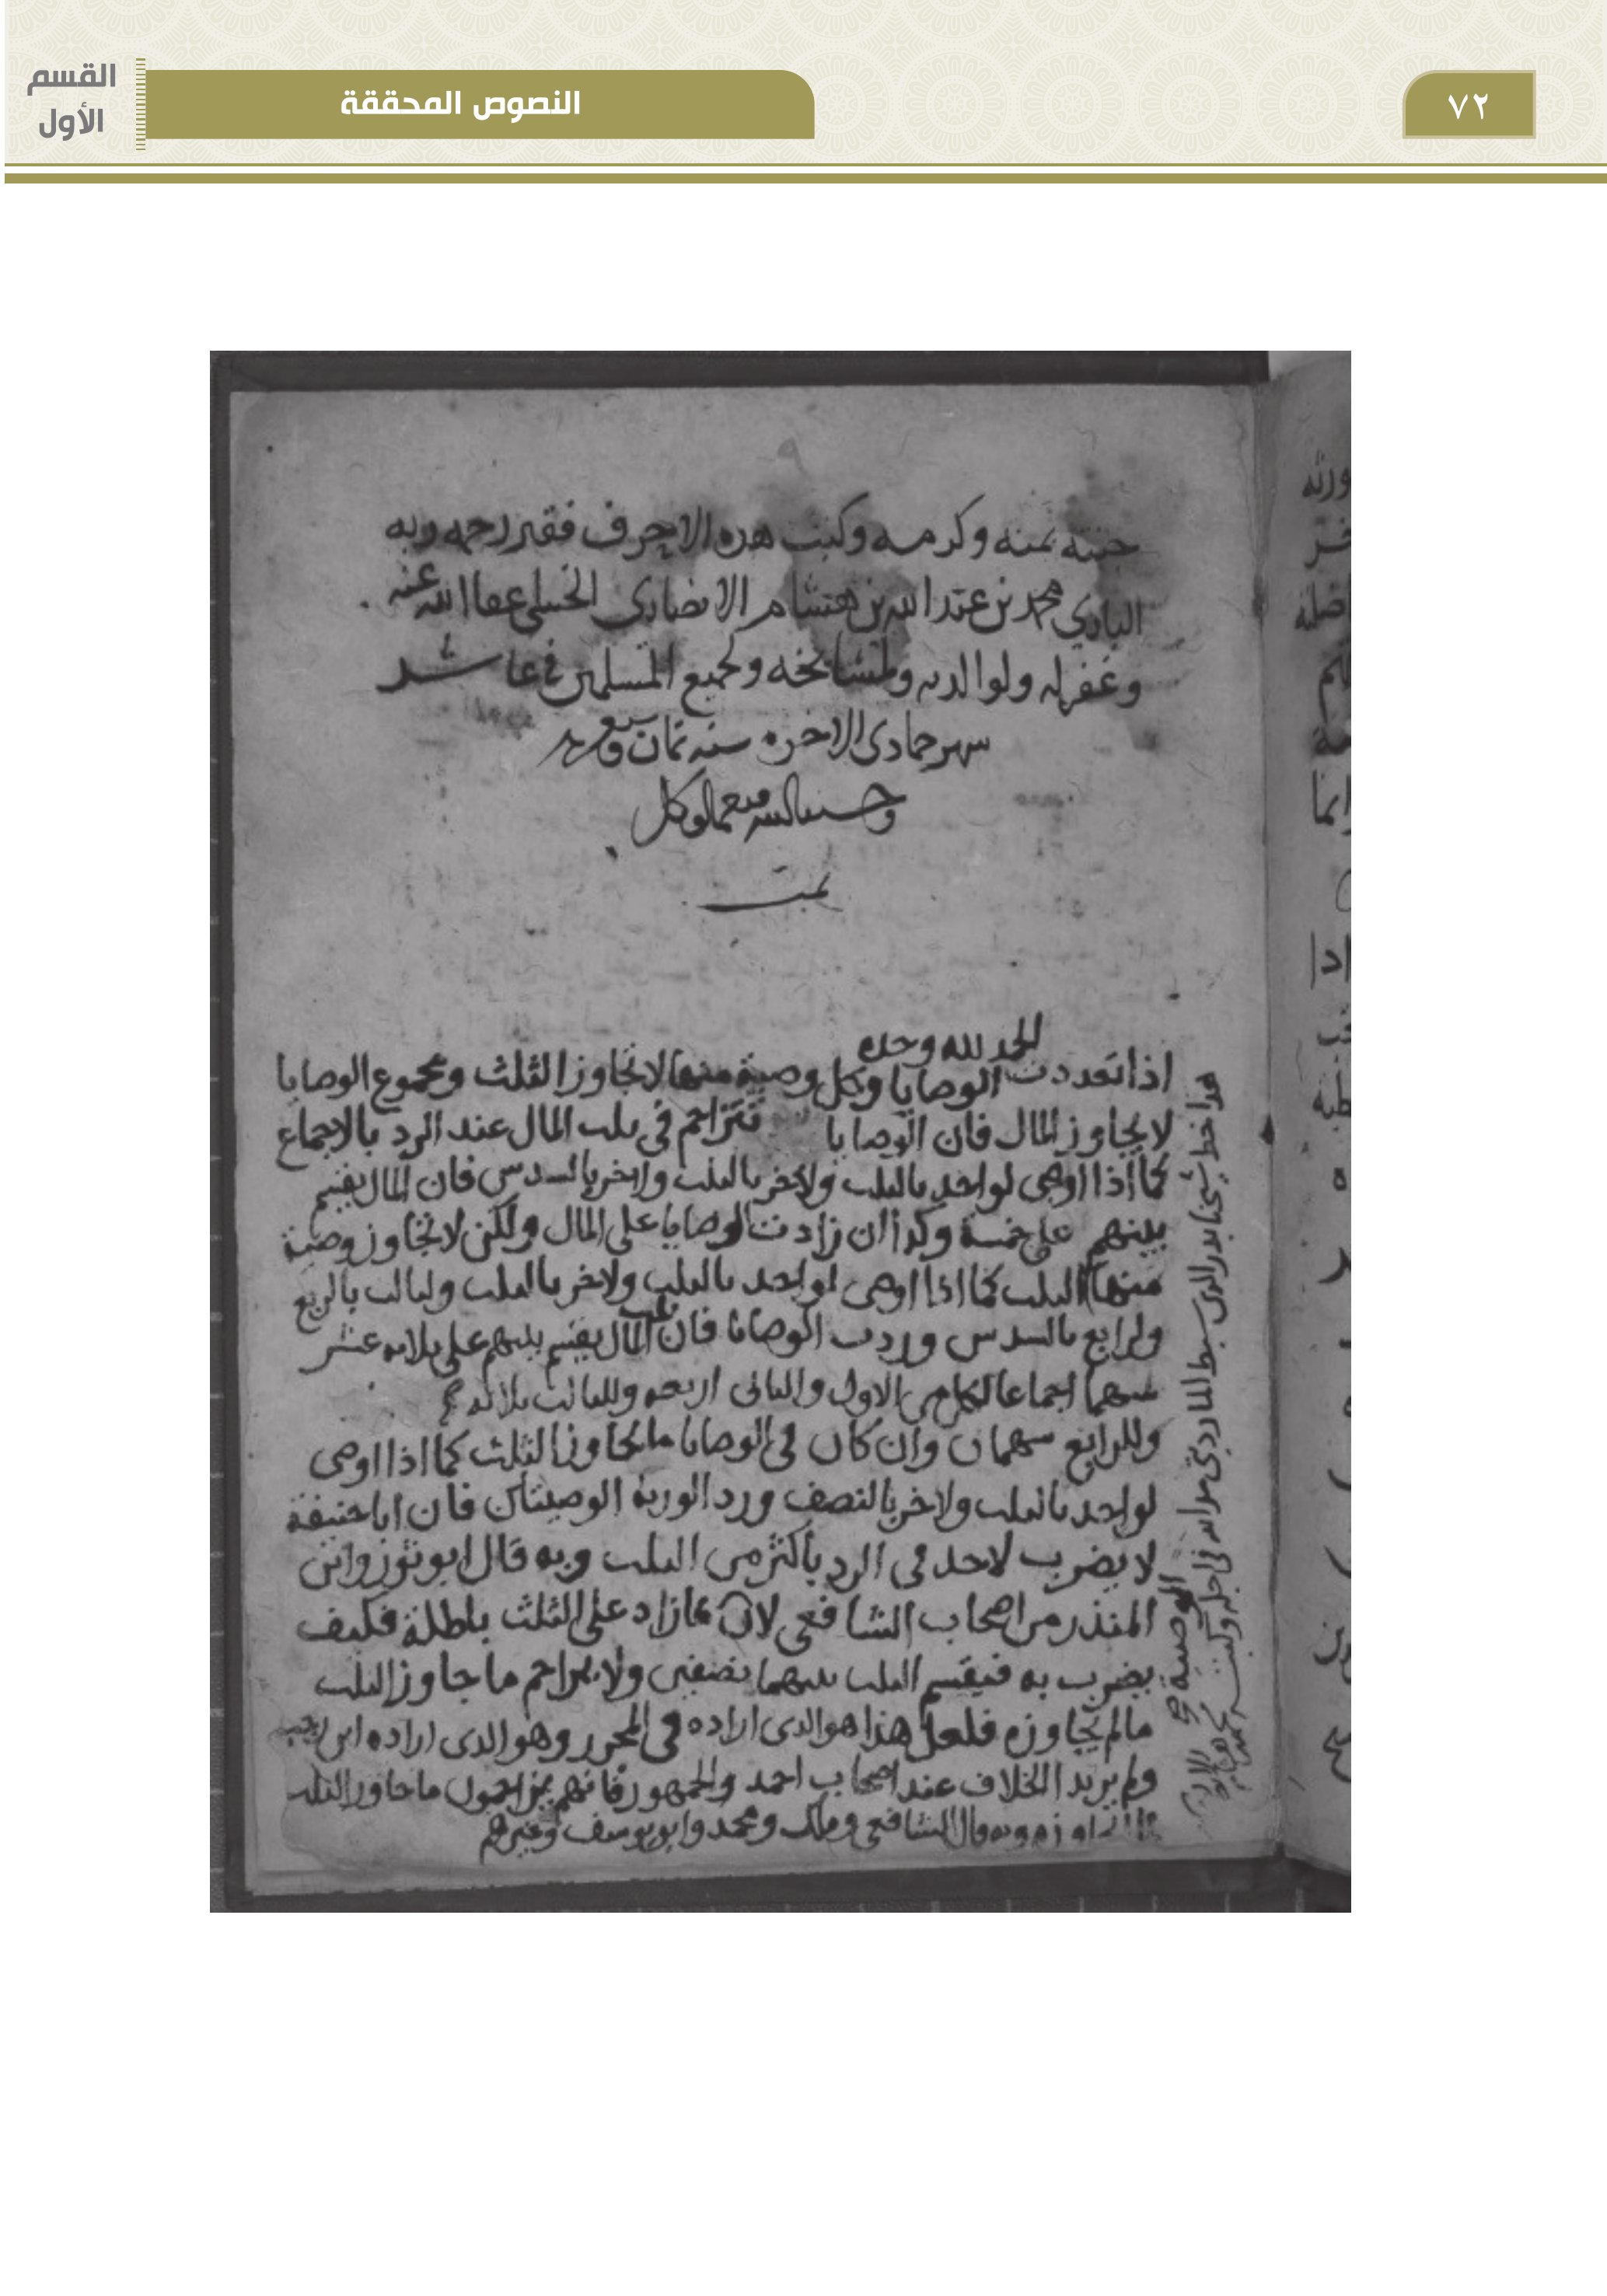 القسم
الأول
النصوص المحققة
٧٢
جنته بمنه وكرمه وكتب هده الاحرف فقير رحمه ربه
محمد بن عبد الله بن هشام الانصاري الحنبلي عفا الله عنه
وغفر له ولوالديه ولمشايخه ولجميع المسلمين في عاشر
شهر جمادى الاخره سنه ثمان
وحسبنا الله ونعم الوكيل
تمت
الحمد لله وحده
اذا تعددت الوصايا وكل وصية منها لا تجاوز الثلث ومجموع الوصايا
لا يجاوز المال فان الوصايا تتزاحم في ثلث المال عند الرد بالاجماع
كما اذا اوصى لواحد بالثلث ولاخر بالثلث واخر بالسدس فان المال يقسم
بينهم على خمسة وكذا ان زادت الوصايا على المال ولكن لا تجاوز وصية
منها الثلث كما اذا اوصى لواحد بالثلث ولاخر بالثلث ولثالث بالربع
ولرابع بالسدس وردت الوصايا فان ثلث المال يقسم بينهم على ثلاثه عشر
سهما اجماعا لكل من الاول والثاني اربعه وللثالث ثلاثه
وللرابع سهمان وان كان في الوصايا ما يجاوز الثلث كما اذا اوصى
لواحد بالثلث ولاخر بالنصف ورد الورثة الوصيتين فان ابا حنيفة
لا يضرب لاحد في الرد باكثر من الثلث وبه قال ابو ثور وابن
المنذر من اصحاب الشافعي لان ما زاد على الثلث باطلة فكيف
يضرب به فيقسم الثلث بينهما نصفين ولا يزاحم ما جاوز الثلث
مالم يجاوزه فلعل هذا هو الذي اراده في المحرر وهو الذي اراده ابن
ولم يريد الخلاف عند اصحاب احمد والجمهور فانهم يزاحمون ما جاوز الثلث
وبه قال الشافعي وملك ومحمد وابو يوسف وغيرهم
هذا خط شيخنا بدر الدين سبط المارديني
الوصية